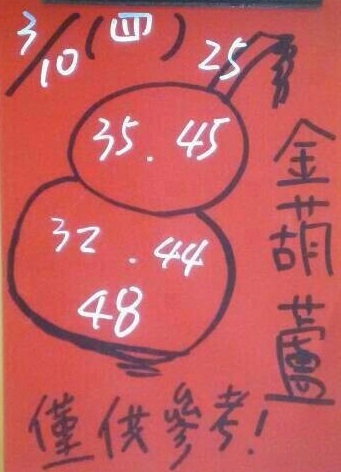 3/10(四)
25
35.45
32.44
48
金葫蘆
僅供參考!